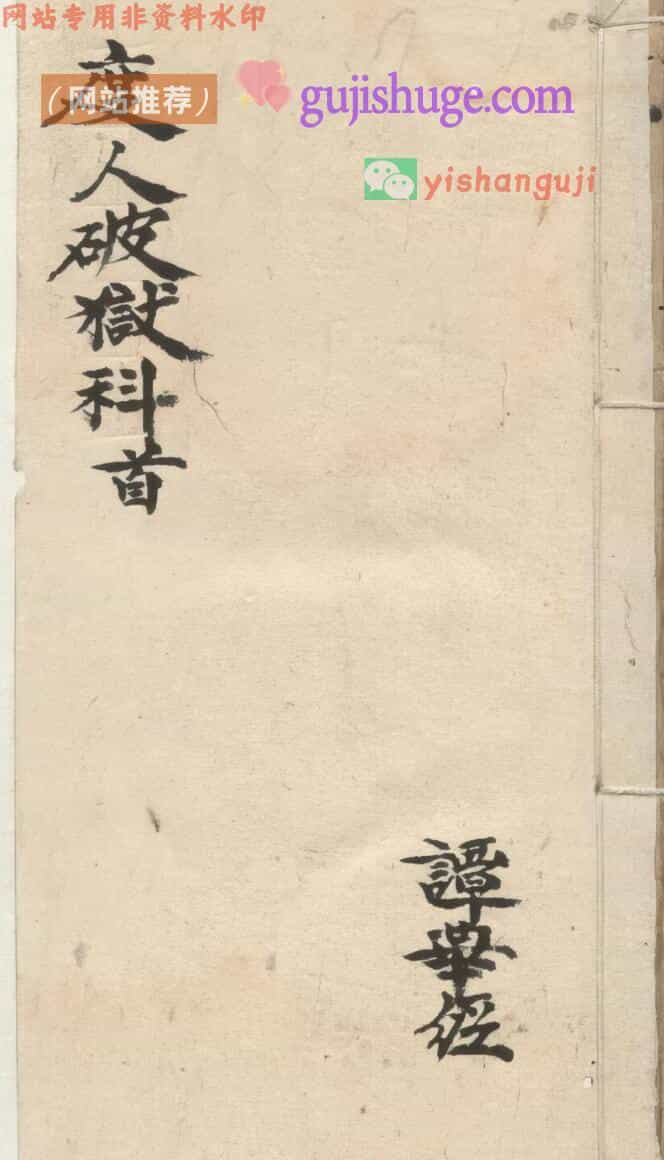 网站专用非资料水印
（网站推荐）
gujishuge.com
yishanguji
度人破獄科首
譚畢經